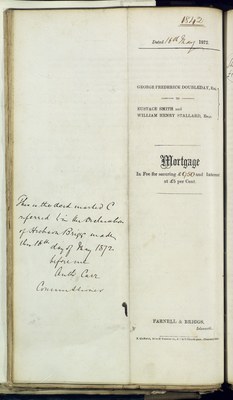 1842
Dated 16th May, 1872
GEORGE FREDERICK DOUBLEDAY, Esq.
to
EUSTACE SMITH and
WILLIAM HENRY STALLARD, Esqs.
Mortgage
In Fee for securing £ and Interest
at £5 per Cent.
This is the deed marked C
referred to in the Declaration
of Briggs made
this 16th day of May 1872
before me
Carr
FARNELL & BRIGGS,
Isleworth.